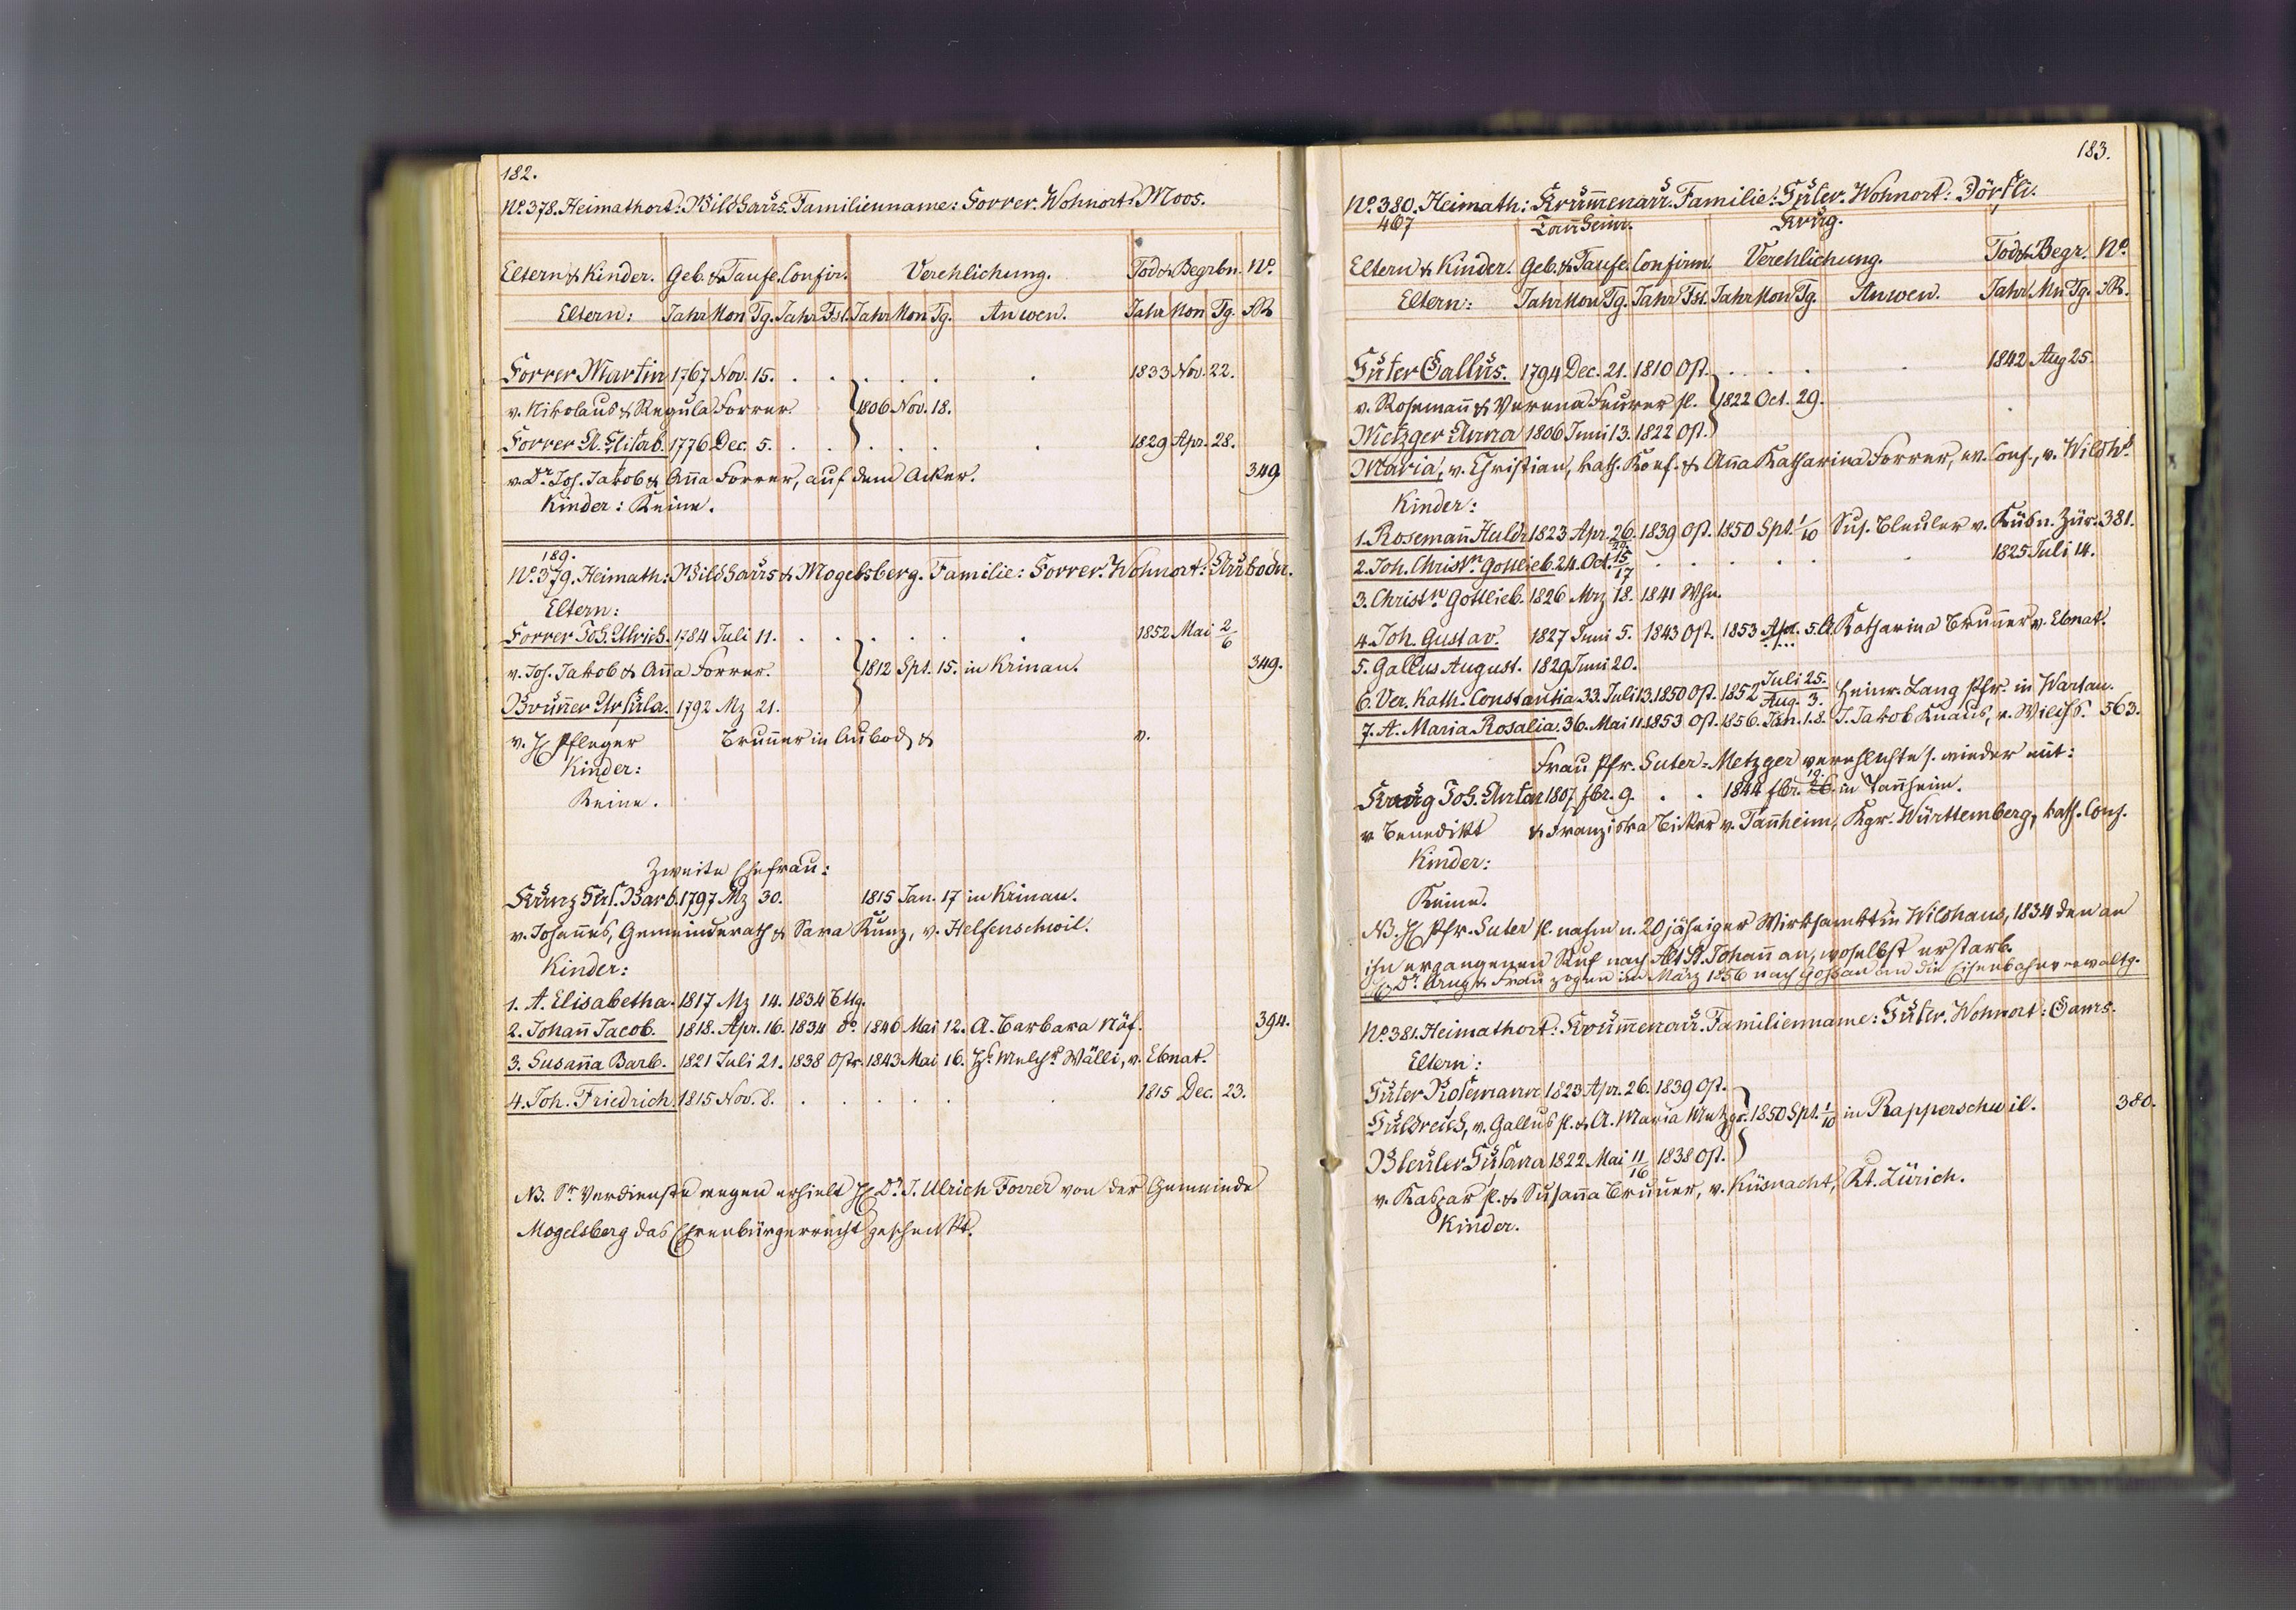 182.
No. 378. Heimathort: Wildhaus. Familienname: Forrer. Wohnort: Moos.
Eltern & Kinder. Geb. & Taufe. Confir. Verehlichung. Tod & Begrbn. No.
Eltern: Jahr Mon Tg. Jahr Fst. Jahr Mon. Tg. Anwen. Jahr Mon Tg. R
Forrer Martin 1767 Nov. 15. . . . . . . 1833 Nov. 22.
v. Nikolaus & Regula Forrer. 1806 Nov. 18.
Forrer A. Elisab. 1776 Dec. 5. . . . . . . 1829 Apr. 28.
v. Dr. Joh. Jakob & Anna Forrer, auf dem Acker. 349
Kinder: Keine.
189.
No. 379. Heimath: Wildhaus & Mogelsberg. Familie: Forrer. Wohnort: Aubodn.
Eltern:
Forrer Joh. Ulrich. 1784 Juli 11. . . . . . . 1852 Mai 2/6
v. Joh. Jakob & Anna Forrer. 1812 Spt. 15. in Krinau. 349.
Brunner Ursula. 1792 Mz 21.
v. H Pfleger Brunner in Aubod, & v.
Kinder:
Keine.
Zweite Ehefrau:
Kunz Barb. 1797 Mz 30. 1815 Jan. 17 in Krinau.
v. Johannes, Gemeinderath & Sara Kunz, v. Helfenschwil.
Kinder:
1. A. Elisabetha. 1817 Mz 14. 1834 Bttg.
2. Johann Jacob. 1818. Apr. 16. 1834 do. 1846 Mai 12. A. Barbara Näf. 394.
3. Susanna Barb. 1821 Juli 21. 1838 Ostr. 1843 Mai 16. Hs. Melchr Wälli, v. Ebnat.
4. Joh. Friedrich. 1815 Nov. 8. . . . . . . 1815 Dec. 23.
NB. Sr. Verdienste wegen erhielt H Dr. J. Ulrich Forrer von der Gemeinde
Mogelsberg das Ehrenbürgerrecht geschenkt.
183.
No. 380. Heimath: Krummenau. Familie: Suter. Wohnort: Dörfli.
467 Tannheim. Krug.
Eltern & Kinder. Geb. & Taufe. Confirm. Verehlichung. Tod & Begr. No.
Eltern: Jahr Mon Tg. Jahr Fst. Jahr Mon Tg. Anwen. Jahr Mn Tg. R.
Suter Gallus. 1794 Dec. 21. 1810 Ost. . . . . . 1842 Aug 25.
v. Rosemann & Verena Feurer sl. 1822 Oct. 29.
Metzger Anna 1806 Juni 13. 1822 Ost.
Maria, v. Christian, kath. Konf. & Anna Katharina Forrer, ev. Conf., v. Wildhs.
Kinder:
1. Rosemann Huldr 1823 Apr. 26. 1839 Ost. 1850 Spt. 1/10 Sus. Bleuler v. Küsn. Zür. 381.
2. Joh. Christn. Gottlieb. 24. Oct. 15/17 . . . . . 1825 Juli 14.
3. Christn. Gottlieb. 1826 Mrz 18. 1841 Whn.
4. Joh. Gustav. 1827 Juni 5. 1843 Ost. 1853 Apr. 5. A. Katharina Brunner v. Ebnat.
5. Gallus August. 1829 Juni 20.
6. Ver. Kath. Constantia. 33. Juli 13. 1850 Ost. 1852 Juli 25. / Aug. 3. Heinr. Lang Pfr. in Wartau.
7. A. Maria Rosalia. 36. Mai 11. 1853 Ost. 1856. Jan. 1. 8. J. Jakob Knaus, v. Wildhs. 563.
Frau Pfr. Suter-Metzger verehlichte s. wieder mit:
Krug Joh. Anton 1807 fbr. 9. . . 1844 fbr. 19. 26. in Tannheim.
v. Benedikt & Franziska Bicker v. Tannheim, Kgr. Württemberg, kath. Conf.
Kinder:
Keine.
NB. H Pfr. Suter sl. nahm n. 20 jähriger Wirksamkt in Wildhaus, 1834 den an
ihn ergangenen Ruf nach Alt St. Johann an, woselbst er starb.
H Dr. Krug & Frau zogen im März 1856 nach Gossau an die Eisenbahnverwaltg.
No. 381. Heimathort: Krummenau. Familienname: Suter. Wohnort: Gams.
Eltern:
Suter Rosemann 1823 Apr. 26. 1839 Ost.
Huldreich, v. Gallus sl. & A. Maria Metzgr. 1850 Spt. 1/10 in Rapperschwil. 380.
Bleuler Susana 1822 Mai 11/16 1838 Ost.
v. Kaspar sl. & Susanna Brunner, v. Küsnacht, Kt. Zürich.
Kinder.